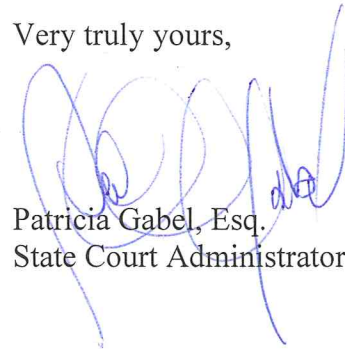 Very truly yours,
Patricia Gabel, Esq.
State Court Administrator